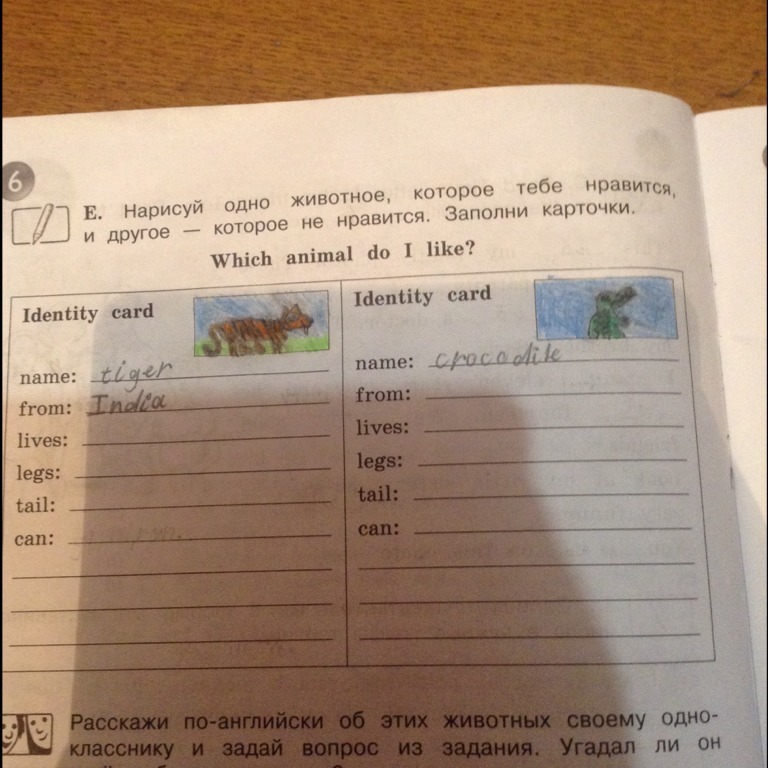 6
E. Нарисуй одно животное, которое тебе нравится,
и другое — которое не нравится. Заполни карточки.
Which animal do I like?
Identity card
name: tiger
from: India
lives:
legs:
tail:
can:
Identity card
name: crocodile
from:
lives:
legs:
tail:
can:
Расскажи по-английски об этих животных своему одно-
класснику и задай вопрос из задания. Угадал ли он